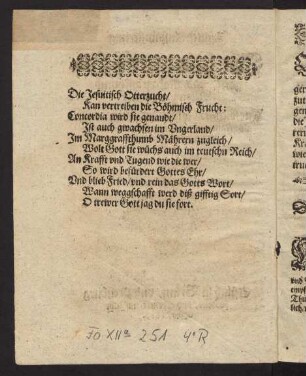 Die Jesuitisch Otterzucht/
Kan vertreiben die Böhmisch Frucht:
Concordia wird sie genandt/
Ist auch gwachsen im Vngerland/
Im Marggraffthumb Mährern zugleich/
Wolt Gott sie wüchs auch im teutschn Reich/
An Krafft vnd Tugend wie die wer/
So wird befürdert Gottes Ehr/
Vnd blieb Fried/vnd rein das Gotts Wort/
Wann weggschafft werd diß gifftig Sort/
O trewer Gott jag du sie fort.
251 4° R